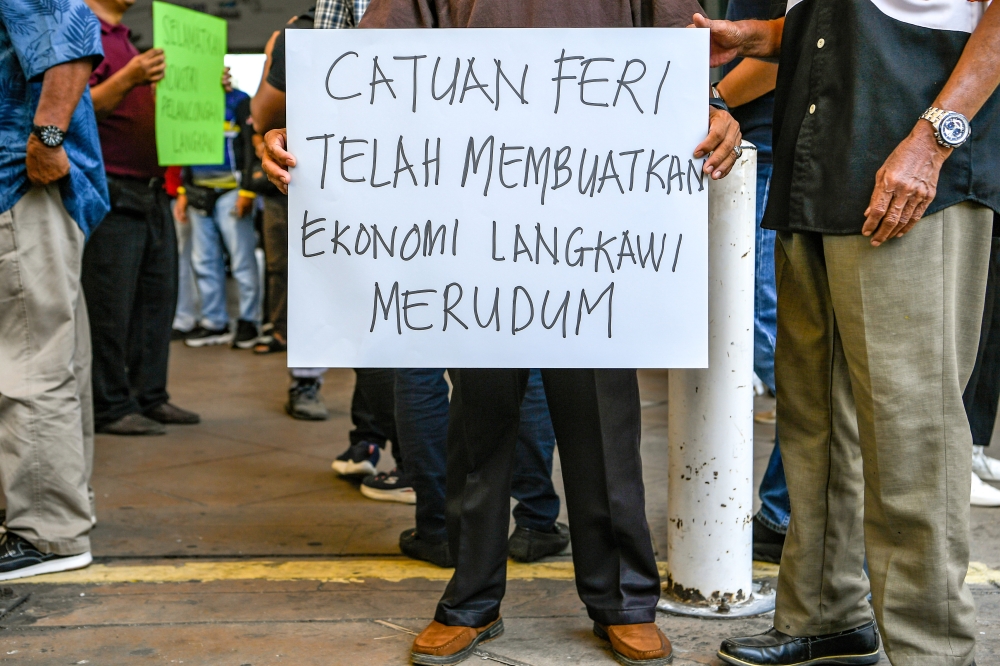 SELAMATKAN
INDUSTRI
PELANCONGAN
LANGKAWI
CATUAN FERI
TELAH MEMBUATKAN
EKONOMI LANGKAWI
MERUDUM